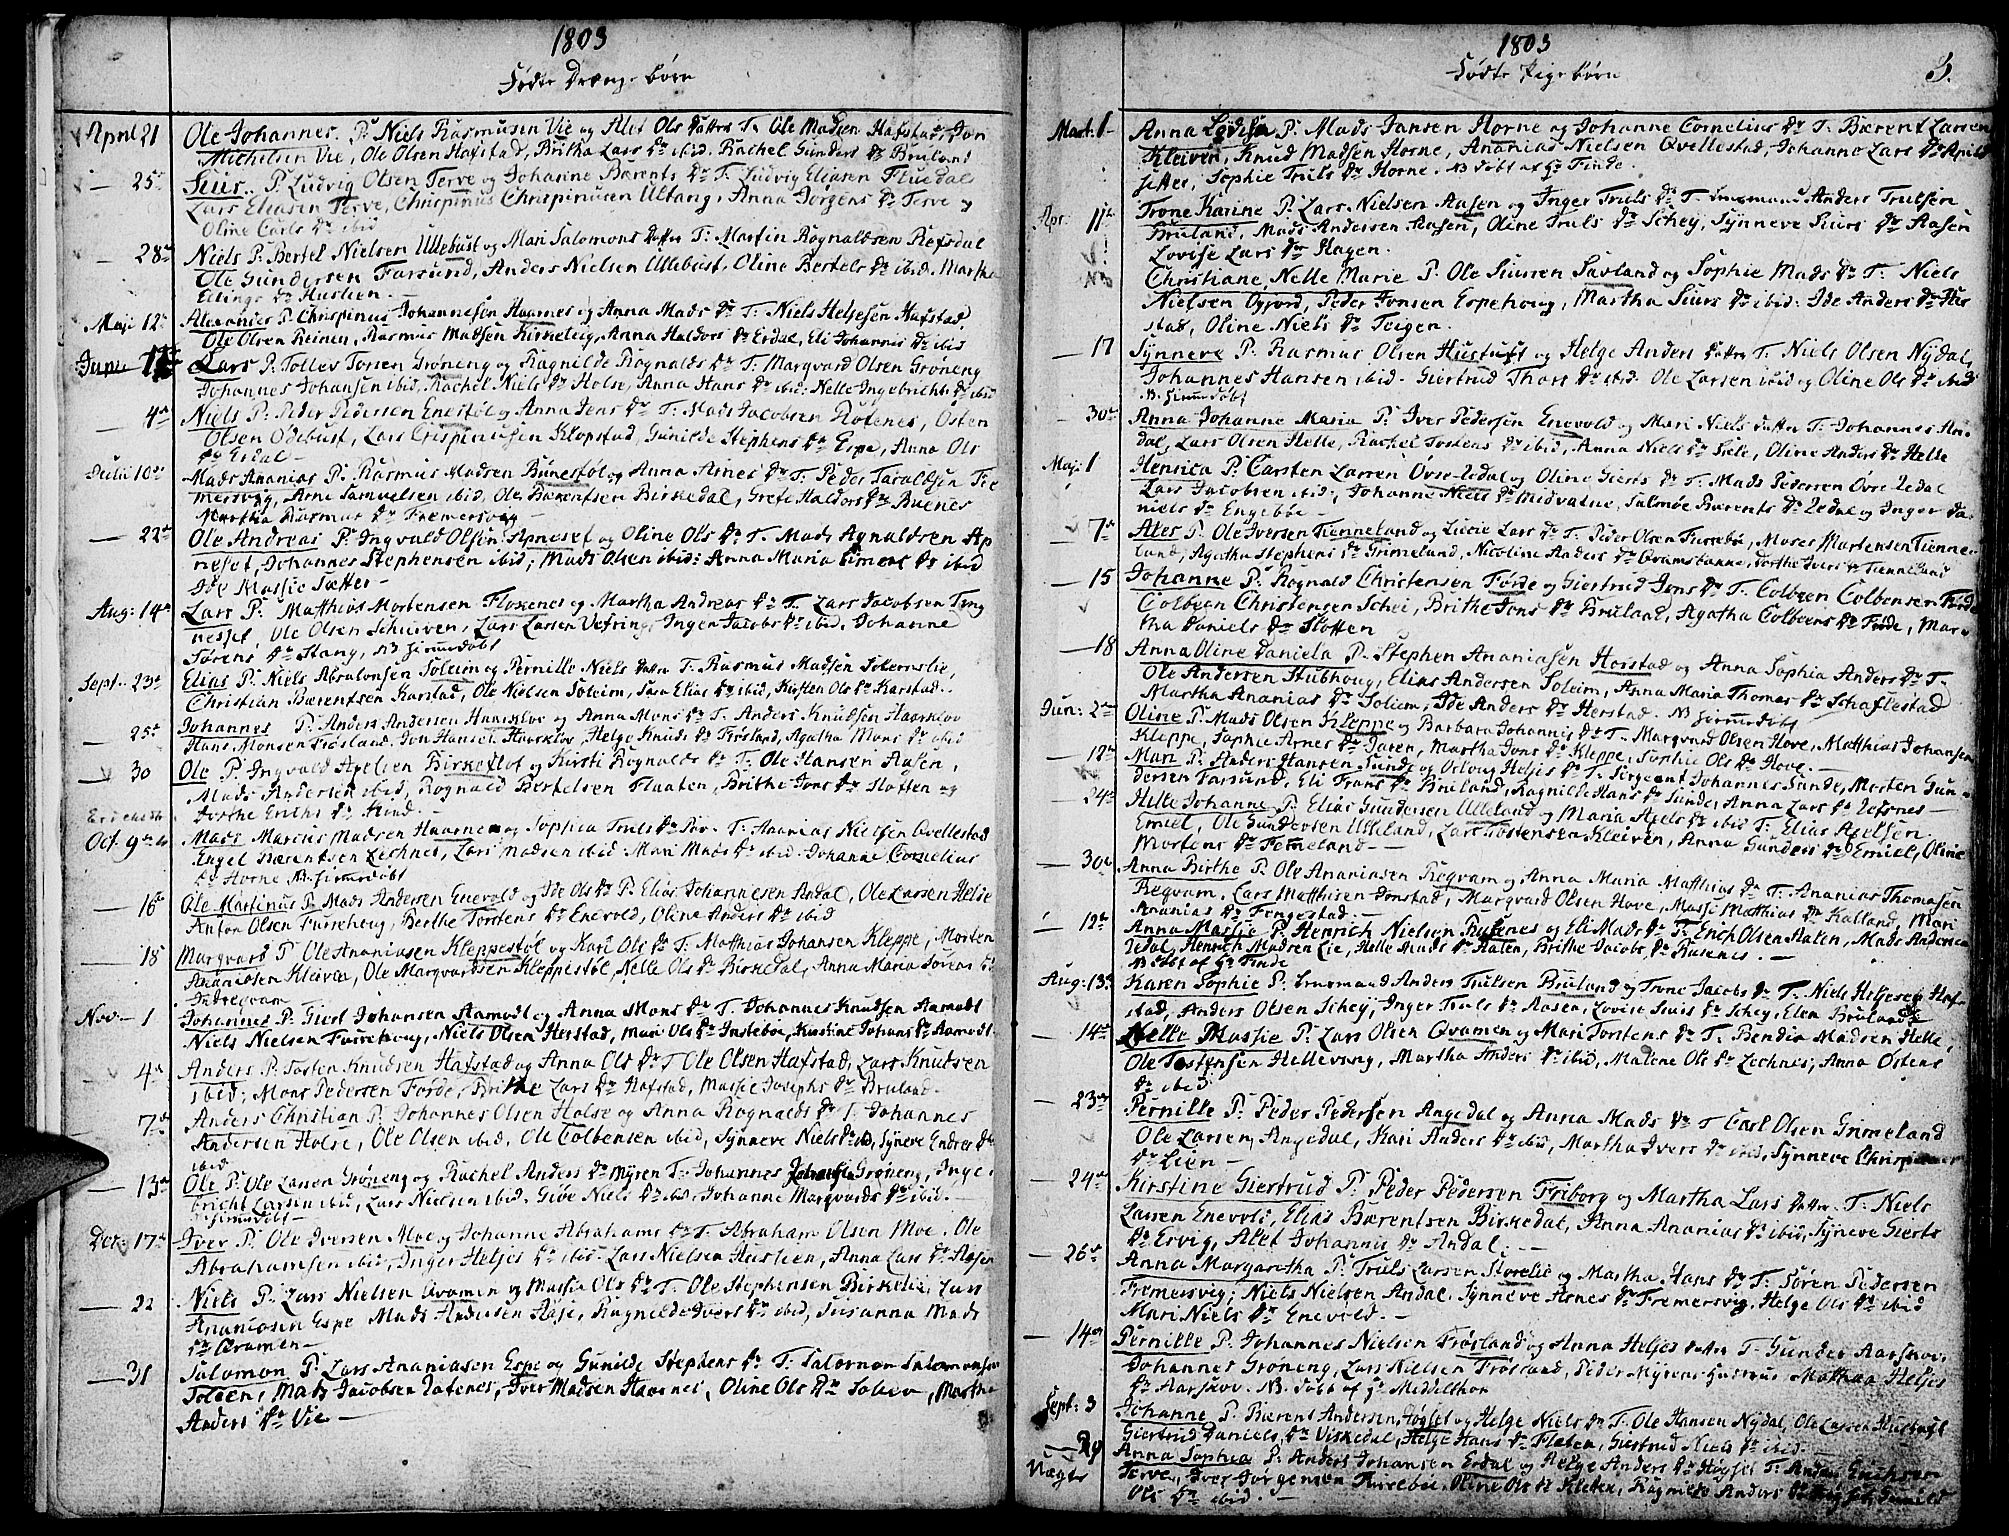 1803
Födte Drenge börn
April 21 Ole Johannes. P. Niels Rasmusen Vie og Alet Ols Datter T. Ole Madsen Hafstad, Jon
Michelsen Vie, Ole Olsen Hafstad, Britha Lars Dr ibid. Rachel Gunders Dr Bruland
— 25 Siur. P. Ludvig Olsen Terve og Johanne Bærents Dr T. Ludvig Eliasen Fluedal
Lars Eliasen Terve, Chrispinus Chrispinusen Ultang, Anna Jörgens Dr Terve og
Oline Carls Dr ibid
— 28 Niels P. Bertel Nielsen Ullebust og Mari Salomons Datter T. Martin Rognaldsen Refsdal
Ole Gundersen Farsund, Anders Nielsen Ullebust, Oline Bertels Dr ibid. Martha
Ellings Dr Huslien.
Maji 12 Alexander P. Chrispinus Johannesen Haarnes og Anna Mads Dr T. Niels Heljesen Hafstad,
Ole Olsen Reinen, Rasmus Madsen Kirkeleig, Anna Haldors Dr Erdal, Eli Johannis Dr ibid
Lars P. Tollev Torsen Gröneng og Ragnilde Rognalds Dr T. Margvard Olsen Gröneng
Johannes Johansen ibid, Rachel Niels Dr Holse, Anna Hans Dr ibid. Nelle Ingebrichts Dr ibid
— 4 Niels P. Peder Pedersen Enestöl og Anna Jens Dr T. Mads Jacobsen Rotenes, Osten
Olsen Odebust, Lars Crispinusen Klopstad, Gunilde Stephens Dr Espe, Anna Ols
Dr Erdal —
Julii 10 Mads Ananias P. Rasmus Madsen Bönestöl og Anna Arnes Dr T. Peder Taraldsen Fre
mersvig, Arne Samuelsen ibid, Ole Bærentsen Birkedal, Grete Haldors Dr Buenes
Martha Rasmus Dr Fremersvig
— 22 Ole Andreas P. Ingvald Olsen Apneset og Oline Ols Dr T. Mads Agnaldsen Ap
neset, Johannes Stephensen ibid, Mads Olsen ibid: Anna Maria Dr ibid
Ide Massie Sætter —
Aug: 14 Lars P. Matthias Mortensen Floxenes og Martha Andreas Dr T. Lars Jacobsen Teng
nesset, Ole Olsen Schurven, Lars Larsen Vefring, Inger Jacobs Dr ibid, Johanne
Sörens Dr Stang, NB hiemedöbt
Sept. 23 Elias P. Niels Abralonsen Soleim og Pernille Niels Datter T. Rasmus Madsen
Christian Bærentsen Karstad, Ole Nielsen Soleim, Sara Elias Dr ibid, Kirsten Ols Dr Karstad.
— 25 Johannes P. Anders Andersen Haarklov og Anna Mons Dr T. Anders Knudsen Haarklov
Hans Monsen Frösland, Jon Hansen Haarklov, Helge Knuds Dr Frösland, Agatha Mons Dr ibid
— 30 Ole P. Ingvald Axelsen Birkeflot og Kirsti Rognalds Dr T. Ole Hansen Aasen,
Mads Andersen ibid, Rognald Bertelsen Flaaten, Brithe Jons Dr Slotten og
Dorthe Eriths Dr Hind.
Oct. 9 Mads Marcus Madsen Haarnes og Sophia Truls Dr T. Ananias Nielsen Qvellestad
Engel Bærentsen Lechnes, Lars Madsen ibid. Mari Mads Dr ibid. Johanne Cornelius
Dr Horne NB. hiemedöbt
— 16 Ole Martinus P. Mads Andersen Enevold og Ide Ols Dr P. Elias Johannesen Andal, Ole Larsen Helle
Anton Olsen Furrehoug, Berthe Torstens Dr Enevold, Oline Anders Dr ibid
18 Margvard P. Ole Ananiasen Kleppestöl og Kari Ols Dr T. Matthias Johansen Kleppe, Morten
Ananiasen Kleiven, Ole Margvardsen Kleppestöl, Nelle Ols Dr Birkedal, Anna Maria Sörens Dr
Indregvam
Nov. — 1 Johannes P. Giert Johansen Aamodt og Anna Mons Dr T. Johannes Knudsen Aamodt
Niels Nielsen Furrehoug, Niels Olsen Herstad, Mari Ols Dr Instebö, Kirstine Johans Dr Aamodt
— 4 Anders P. Tosten Knudsen Hafstad og Anna Ols Dr T. Ole Olsen Hafstad, Lars Knudsen
ibid; Mons Pedersen Förde, Brithe Lars Dr Hafstad, Massie Josephs Dr Bruland
— 7 Anders Christian P. Johannes Olsen Holse og Anna Rognalds Dr T. Johannes
Andersen Holse, Ole Olsen ibid, Ole Colbensen ibid, Synneve Niels Dr ibid, Synneve Endres Dr
ibid
— 13 Ole P. Ole Larsen Gröneng og Rachel Anders Dr Myren T. Johannes Johansen Gröneng, Inge
bricht Larsen ibid, Lars Nielsen ibid. Giöe Niels Dr ibid, Johanne Margvards Dr ibid.
hiemedöbt —
Dec. 17 Iver P. Ole Iversen Moe og Johanne Abrahams Dr T. Abraham Olsen Moe, Ole
Abrahamsen ibid, Inger Heljes Dr ibid. Lars Nielsen Huslien, Anna Lars Dr Aasen
— 22 Niels P. Lars Nielsen Qvamen og Massie Ols Dr T. Ole Stephensen Birkelie, Lars
Ananiasen Espe Mads Andersen Ruse, Ragnilde Ivers Dr ibid, Susanna Mads
Dr Qvamen —
— 31 Salomon P. Lars Ananiasen Espe og Gunilde Stephens Dr T. Salomon Salomonsen
Solien, Mats Jacobsen Rotenes, Iver Madsen Haarnes, Oline Ols Dr Solien, Martha
Anders Dr Vie —
1803 3.
Födte Pige börn
Mart. 1 Anna Lovisa P. Mads Jansen Horne og Johanne Cornelius Dr T. Bærent Larsen
Kleiven, Knud Madsen Horne, Ananias Nielsen Qvellestad, Johanna Lars Dr Apild
sæter, Sophie Truls Dr Horne. NB döbt af Hr Finde.
Apr. 11 Trone Karine P. Lars Nielsen Aasen og Inger Truls Dr T. Lensmand Anders Trulsen
Bruland, Mads Andersen Aasen, Oline Truls Dr Schey, Synneve Siurs Dr Aasen
Lovise Lars Dr Hagen.
Christiane Nelle Marie P. Ole Siursen Savland og Sophie Mads Dr T. Niels
Nielsen Ogjord, Peder Jonsen Espehoug, Martha Siurs Dr ibid. Ide Anders Dr Her
stad, Oline Niels Dr Teigen.
— 17 Synneve P. Rasmus Olsen Hustuft og Helge Anders Datter T. Niels Olsen Nydal,
Johannes Hansen ibid. Giertrud Thors Dr ibid. Ole Larsen ibid og Oline Ols Dr ibid
NB. hiemedöbt
— 30 Anna Johanne Maria P. Iver Pedersen Enevold og Mari Niels Datter T. Johannes An
dal, Lars Olsen Helle, Rachel Tostens Dr ibid, Anna Niels Dr Siele, Oline Anders Dr Helle
Maji 1 Hensica P. Carsten Larsen Övre-Ledal og Oline Gierts Dr T. Mads Pedersen Övre Ledal
Lars Jacobsen ibid, Johanne Niels Dr Midvatne, Salmöe Bærents Dr Ledal og Inger Da
niels Dr Engeböe.
— 7 Ales P. Ole Iversen Tienneland og Lucie Lars Dr T. Peder Olsen Furrebö, Moses Mortensen Tienne
land, Agatha Stephens Dr Grimeland, Nicoline Anders Dr Qvamstanne, Dorthe Ivers Dr Tienneland
— 15 Johanne P. Rognald Christensen Förde og Giertrud Jons Dr T. Colbeen Colbensen Förde
Colbeen Christensen Schei, Brithe Jons Dr Bruland, Agatha Colbeens Dr Förde, Mar
tha Daniels Dr Slotten
— 18 Anna Oline Daniela P. Stephen Ananiasen Horstad og Anna Sophia Anders Dr T.
Ole Andersen Stubhoug, Elias Andersen Soleim, Anna Maria Thomas Dr Schaflestad
Martha Ananias Dr Soliem, Ide Anders Dr Herstad. NB hiemedöbt
Jun: 2 Oline P. Mads Olsen Kleppe og Barbara Johannis Dr T. Margvard Olsen Hove, Matthias Johansen
Kleppe, Sophie Arnes Dr Jaren, Martha Jons Dr Kleppe, Sophie Ols Dr Hove. —
— 12 Mari P. Anders Hansen Sunde og Oslaug Heljes Dr T. Sergeant Johannes Sunde, Morten Gun
dersen Farsund, Eli Frans Dr Bruland, Ragnilde Hans Dr Sunde, Anna Lars Dr Refsnes —
— 24 Helle Johanne P. Elias Gundersen Ulleland og Maria Axels Dr ibid T. Elias Axelsen
Emiel, Ole Gundersen Ulleland, Lars Tostensen Kleiven, Anna Gunders Dr Emiel, Oline
Mortens Dr Femeland. —
— 30 Anna Birthe P. Ole Ananiasen Regvam og Anna Maria Matthias Dr T. Ananias Thomasen
Regvam, Lars Matthisen Jonstad, Margvard Olsen Hove, Massi Matthias Dr Kalland, Mari
Ananias Dr Fengestad. —
12 Anna Massie P. Henrich Nielsen Rusenes og Eli Mads Dr T. Erich Olsen Aalen, Mads Andersen
Ledal, Henrich Madsen Lie, Helle Mads Dr Aalen, Brithe Jacobs Dr Rusenes. —
NB döbt af Hr Finde
Aug: 13 Karen Sophie P. Lensmand Anders Trulsen Bruland og Trone Jacobs Dr T. Niels Heljesen Haf
stad, Anders Olsen Schey, Inger Truls Dr Aasen, Lovise Siurs Dr Schey, Elen Brulands
— 14 Helle Massie P. Lars Olsen Qvamen og Mari Torstens Dr T. Bendix Madsen Helle,
Ole Tostensen Hellevang, Martha Anders Dr ibid, Malene Ols Dr Lechnes, Anna Ostens
Dr ibid
— 23 Pernille P. Peder Pedersen Angedal og Anna Mads Dr T. Carl Olsen Grimeland
Ole Larsen, Angedal, Kari Anders Dr ibid, Martha Ivers Dr ibid, Synneve Chrispinus
Dr Lien —
— 24 Kirstine Giertrud P. Peder Pedersen Friborg og Martha Lars Datter. T. Niels
Larsen Enevold, Elias Bærentsen Birkedal, Anna Ananias Dr ibid, Synneve Gierts
Dr Ervig, Alet Johannis Dr Andal. —
— 26 Anna Margaretha P. Truls Larsen Storelie og Martha Hans Dr T. Sören Pedersen
Fremersvig, Niels Nielsen Andal, Synneve Arnes Dr Fremersvig, Helge Ols Dr ibid
Mari Niels Dr Enevold. —
— 14 Pernille P. Johannes Nielsen Frösland og Anna Heljes Datter T. Gunder Aarskov,
Johannes Gröneng, Lars Nielsen Frösland, Peder Myrens Hustrue Matthea Heljes
Dr Aarskov. NB. döbt af Hr Middelthon
Sept: 3 Johanne P. Bærent Andersen Högset og Helge Niels Dr T. Ole Hansen Nydal, Ole Larsen Hustuft
Giertrud Daniels Dr Viskedal, Helge Hans Dr Flaten, Giertrud Niels Dr ibid. —
Anna Sophia P. Anders Johansen Erdal og Helge Anders Dr Högset T. Anders Erichsen
Terve, Iver Jörgensen Furreböe, Oline Ols Dr Kletten, Ragnilde Anders
Ols Dr ibid. —